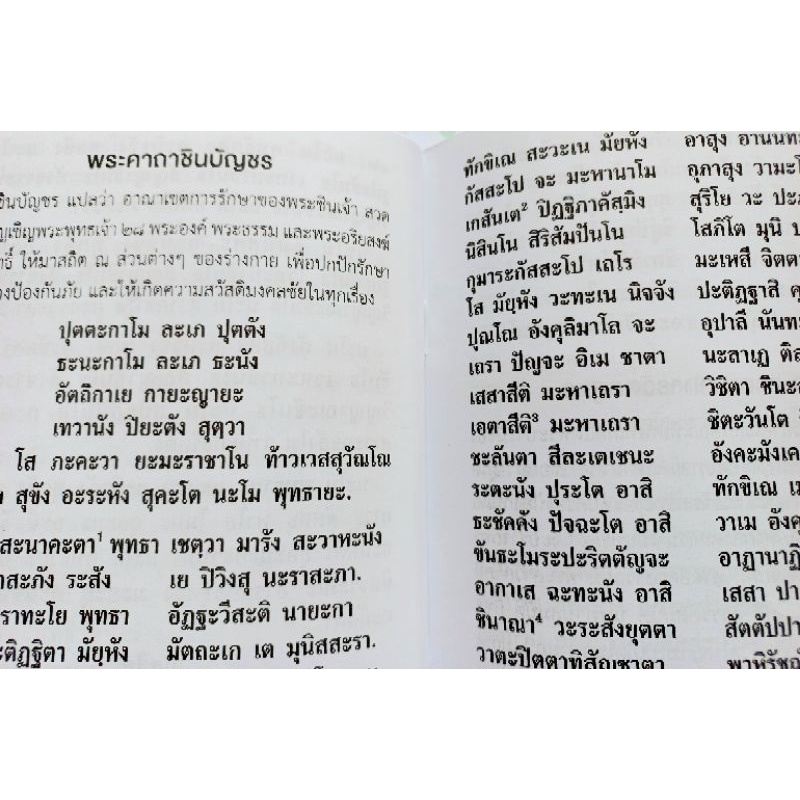 พระคาถาชินบัญชร
ชินบัญชร แปลว่า อาณาเขตการรักษาของพระชินเจ้า สวด
เชิญพระพุทธเจ้า ๒๘ พระองค์ พระธรรม และพระอริยสงฆ์
ให้มาสถิต ณ ส่วนต่างๆ ของร่างกาย เพื่อปกปักรักษา
ป้องกันภัย และให้เกิดความสวัสดิมงคลชัยในทุกเรื่อง
ปุตตะกาโม ละเภ ปุตตัง
ธะนะกาโม ละเภ ธะนัง
อัตถิกาเย กายะญายะ
เทวานัง ปิยะตัง สุตฺวา
โส ภะคะวา ยะมะราชาโน ท้าวเวสสุวัณโณ
สุขัง อะระหัง สุคะโต นะโม พุทธายะ.
สะนาคะตา¹ พุทธา เชตฺวา มารัง สะวาหะนัง
าสะภัง ระสัง เย ปิวิงสุ นะราสะภา.
ราทะโย พุทธา อัฏฐะวีสะติ นายะกา
ะติฏฐิตา มัยฺหัง มัตถะเก เต มุนิสสะรา.
ทักขิเณ สะวะเน มัยหัง อาสุง อานันทะ
กัสสะโป จะ มะหานาโม อุภาสุง วามะโ
เกสันเต² ปิฏฐิภาคัสฺมิง สุริโย วะ ปะภ
นิสินโน สิริสัมปันโน โสภิโต มุนิ ป
กุมาระกัสสะโป เถโร มะเหสี จิตต
โส มัยฺหัง วะทะเน นิจจัง ปะติฏฐาสิ คุ
ปุณโณ อังคุลิมาโล จะ อุปาลี นันท
เถรา ปัญจะ อิเม ชาตา นะลาเฏ ติล
เสสาสีติ มะหาเถรา วิชิตา ชินะส
เอตาสีติ³ มะหาเถรา ชิตะวันโต
ชะลันตา สีละเตเชนะ อังคะมังเค
ระตะนัง ปุระโต อาสิ ทักขิเณ เม
ธะชัคคัง ปัจฉะโต อาสิ วาเม อังคุ
ขันธะโมระปะริตตัญจะ อาฏานาฏิ
อากาเส ฉะทะนัง อาสิ เสสา ปา
ชินาณา⁴ วะระสังยุตตา สัตตัปปา
วาตะปิตตาทิสัญชาตา พาหิรัชฌั